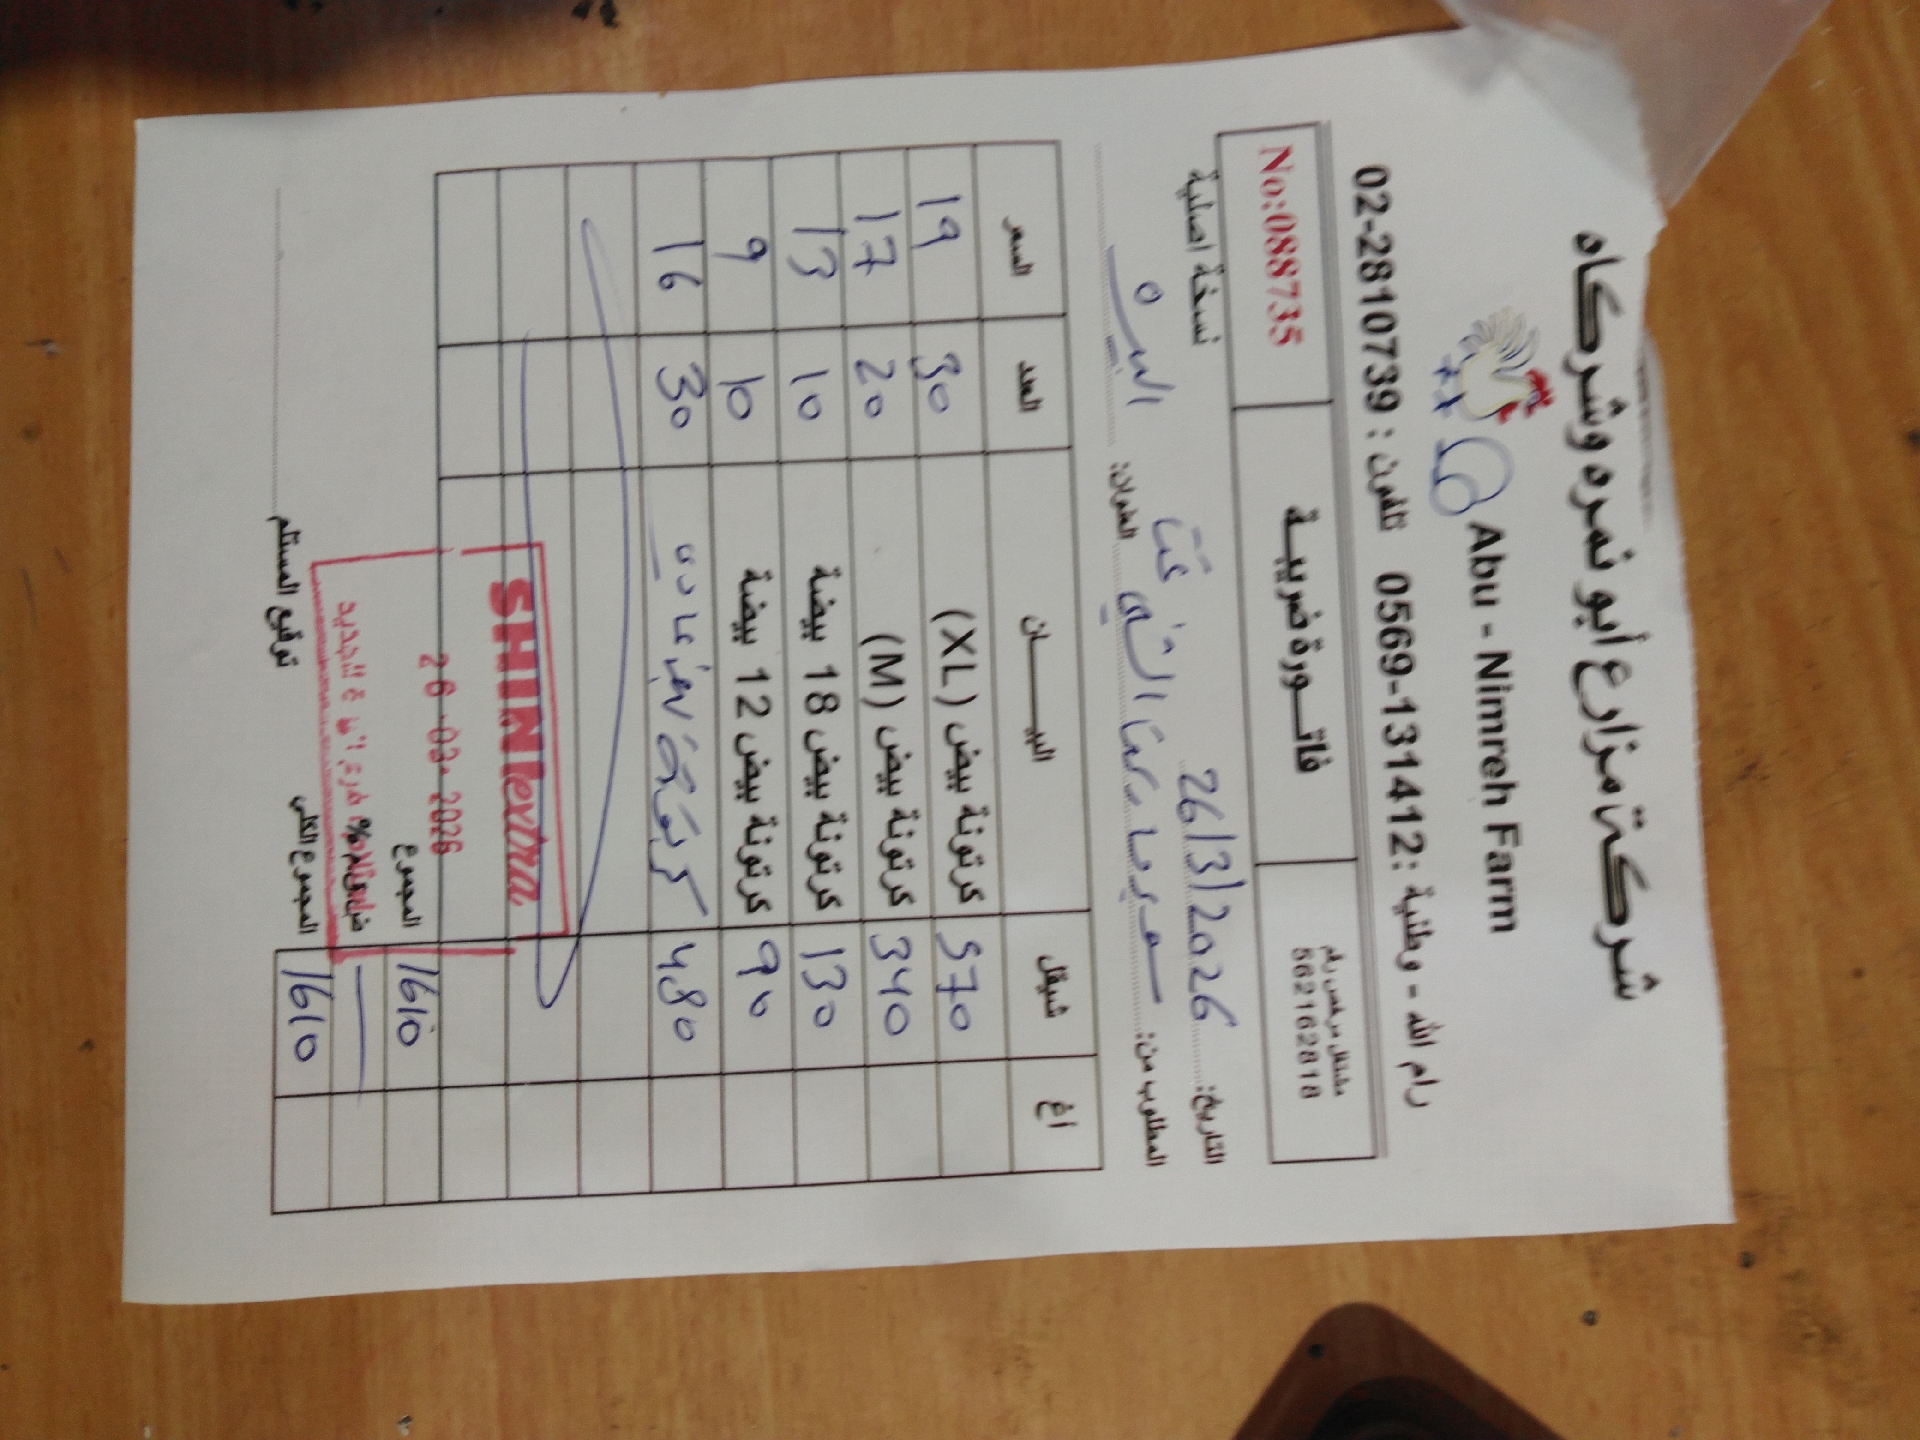 شركة مزارع أبو نمره وشركاه
Abu - Nimreh Farm
رام الله - وطنية : 0569-131412 تلفون : 02-2810739
مشتغل مرخص رقم
562162818
فاتورة ضريبية
No:088735
التاريخ: 26/3/2026
نسخة اصلية
المطلوب من:
العنوان: البيره
أغ شيقل البيـــان العدد السعر
570 كرتونة بيض (XL) 30 19
340 كرتونة بيض (M) 20 17
130 كرتونة بيض 18 بيضة 10 13
90 كرتونة بيض 12 بيضة 10 9
480 كرتونة بيض عادي 30 16
SHINI extra
26 -03- 2026
المجموع 1610
%
المجموع الكلي 1610
توقيع المستلم